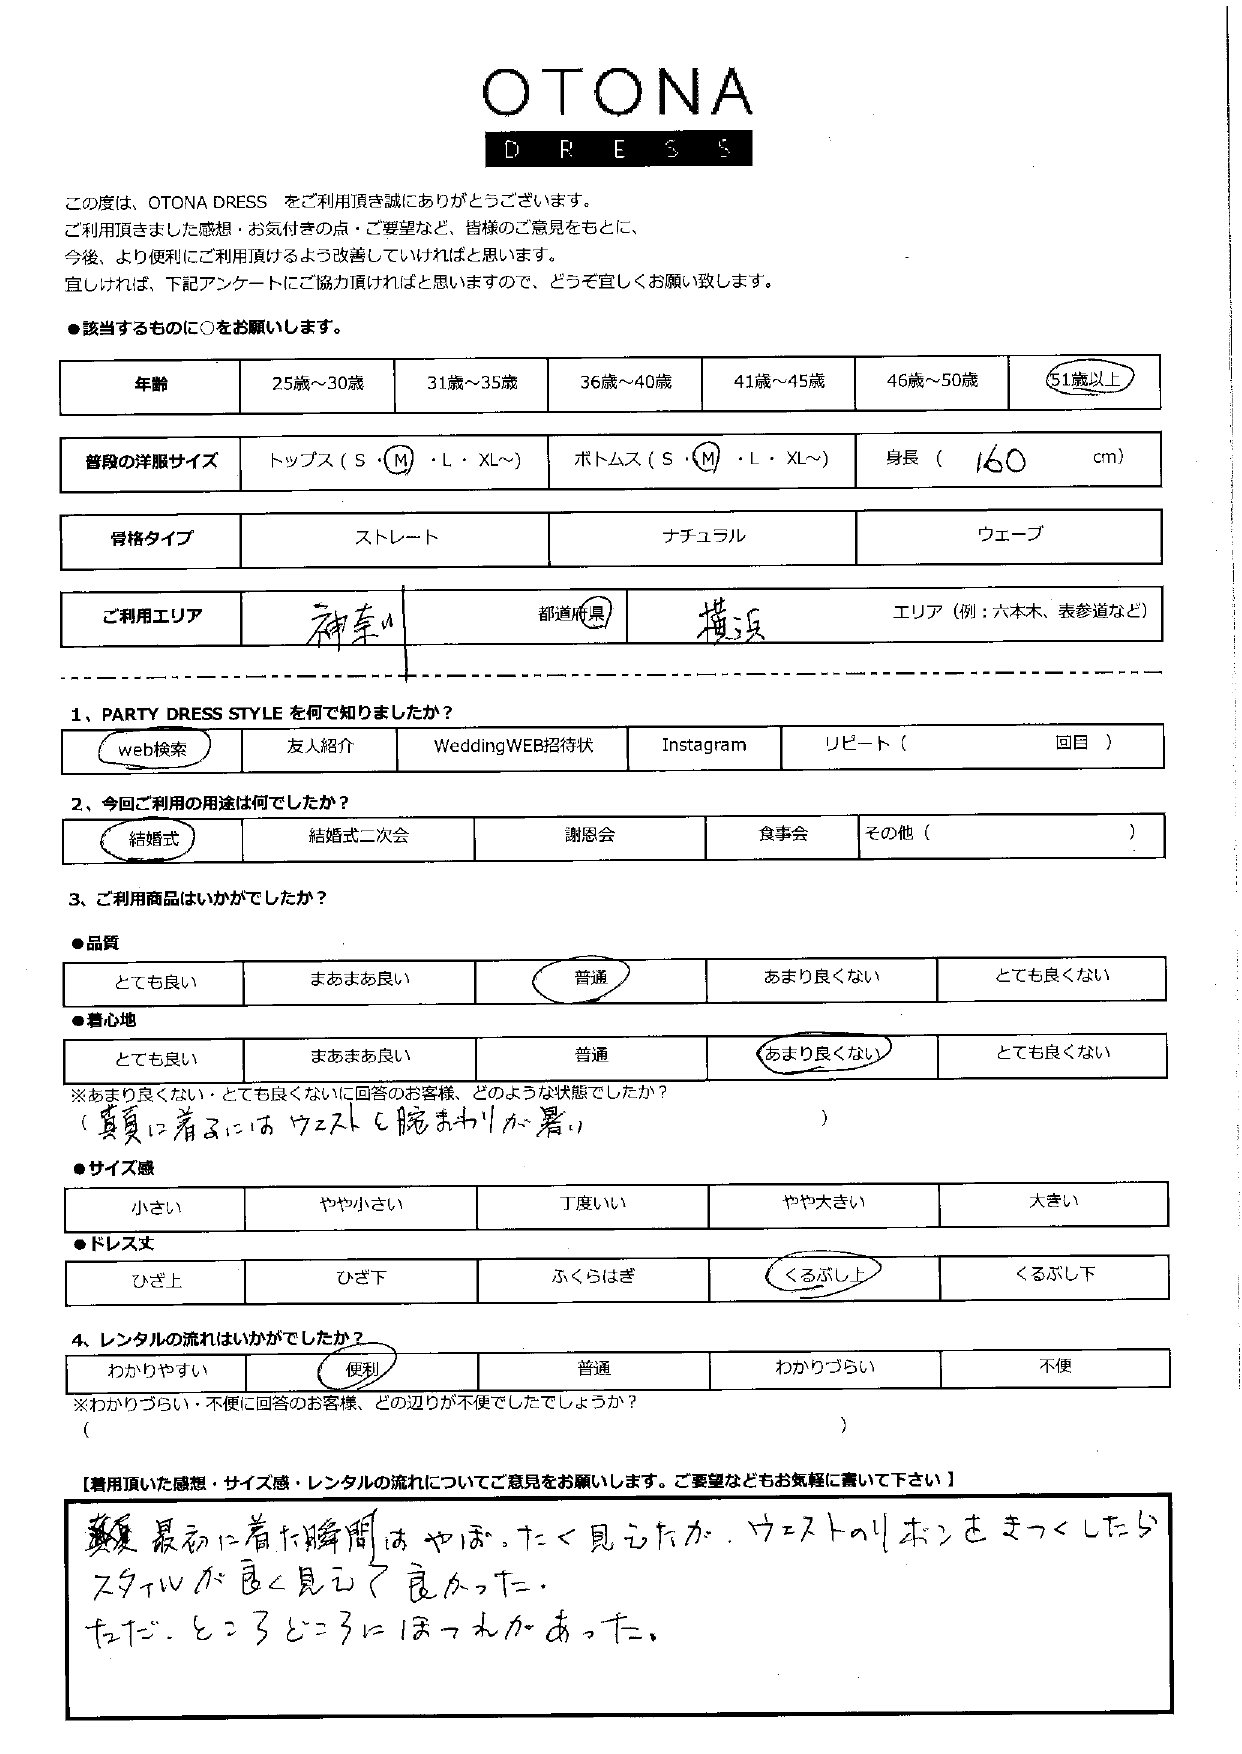 OTONA
DRESS
この度は、OTONA DRESS をご利用頂き誠にありがとうございます。
ご利用頂きました感想・お気付きの点・ご要望など、皆様のご意見をもとに、
今後、より便利にご利用頂けるよう改善していければと思います。
宜しければ、下記アンケートにご協力頂ければと思いますので、どうぞ宜しくお願い致します。
●該当するものに○をお願いします。
年齢 25歳～30歳 31歳～35歳 36歳～40歳 41歳～45歳 46歳～50歳 51歳以上
普段の洋服サイズ トップス ( S ・ M ・ L ・ XL～) ボトムス ( S ・ M ・ L ・ XL～) 身長 ( 160 cm)
骨格タイプ ストレート ナチュラル ウェーブ
ご利用エリア 神奈川 都道府県 横浜 エリア（例：六本木、表参道など）
1、PARTY DRESS STYLE を何で知りましたか？
web検索 友人紹介 WeddingWEB招待状 Instagram リピート ( 回目 )
2、今回ご利用の用途は何でしたか？
結婚式 結婚式二次会 謝恩会 食事会 その他 ( )
3、ご利用商品はいかがでしたか？
●品質
とても良い まあまあ良い 普通 あまり良くない とても良くない
●着心地
とても良い まあまあ良い 普通 あまり良くない とても良くない
※あまり良くない・とても良くないに回答のお客様、どのような状態でしたか？
( 真夏に着るにはウエストと腕まわりが暑い )
●サイズ感
小さい やや小さい 丁度いい やや大きい 大きい
●ドレス丈
ひざ上 ひざ下 ふくらはぎ くるぶし上 くるぶし下
4、レンタルの流れはいかがでしたか？
わかりやすい 便利 普通 わかりづらい 不便
※わかりづらい・不便に回答のお客様、どの辺りが不便でしたでしょうか？
( )
【着用頂いた感想・サイズ感・レンタルの流れについてご意見をお願いします。ご要望などもお気軽に書いて下さい】
最初に着た瞬間はやぼったく見えたが、ウエストのリボンをきつくしたら
スタイルが良く見えて良かった。
ただ、ところどころにほつれがあった。